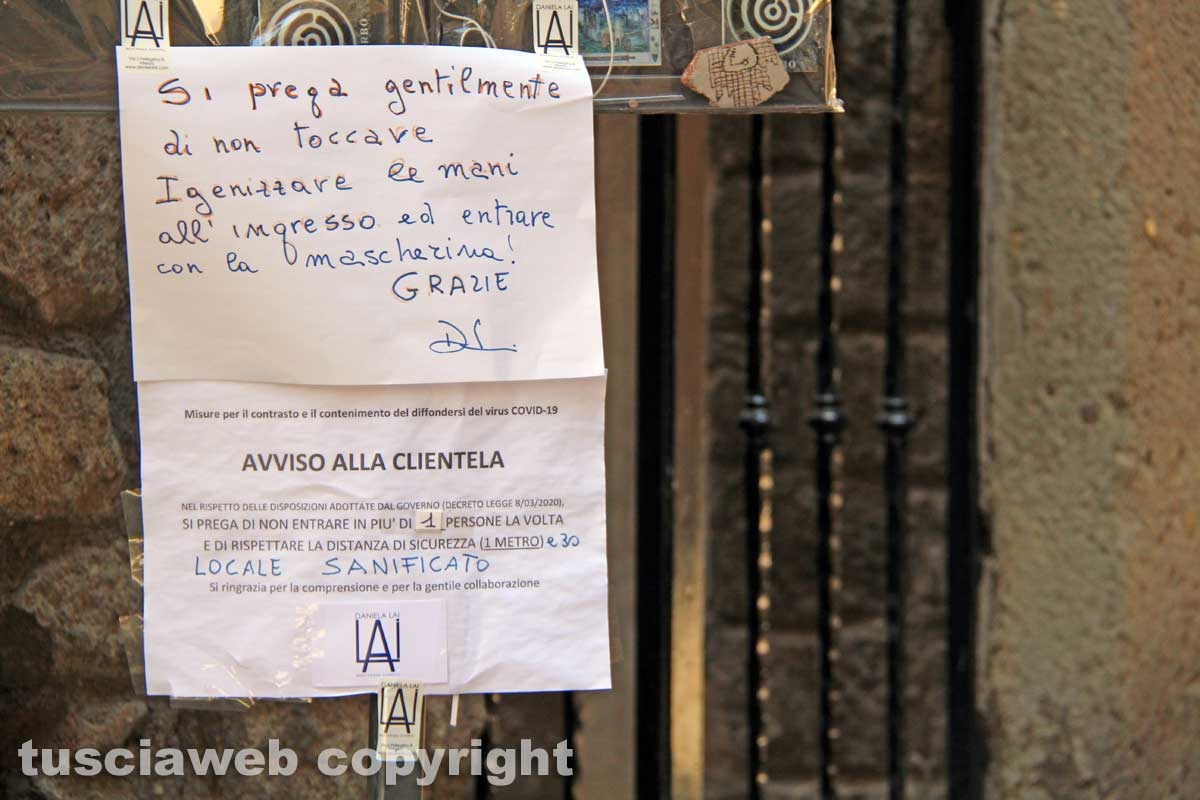 DANIELA LAI
LAI
www.danielalai.com
DANIELA LAI
LAI
Si prega gentilmente
di non toccare
Igenizzare le mani
all' ingresso ed entrare
con la mascherina!
GRAZIE
DL.
Misure per il contrasto e il contenimento del diffondersi del virus COVID-19
AVVISO ALLA CLIENTELA
NEL RISPETTO DELLE DISPOSIZIONI ADOTTATE DAL GOVERNO (DECRETO LEGGE 8/03/2020),
SI PREGA DI NON ENTRARE IN PIU' DI 1 PERSONE LA VOLTA
E DI RISPETTARE LA DISTANZA DI SICUREZZA (1 METRO) e 30
LOCALE SANIFICATO
Si ringrazia per la comprensione e per la gentile collaborazione
DANIELA LAI
LAI
DANIELA LAI
LAI
tusciaweb copyright